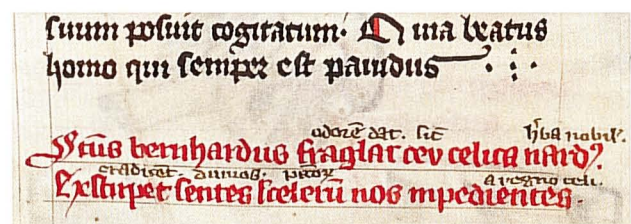 suum posuit cogitatum. Quia beatus
homo qui semper est pauidus
odorē dat. sic̄ h̓ba nobil᷒.
Sc̄us bernhardus fraglat ceu celica nard᷒.
eradicet. dumos. pctōꝝ a regno celi.
Exstirpet sentes sceleru̅ nos inpedientes.